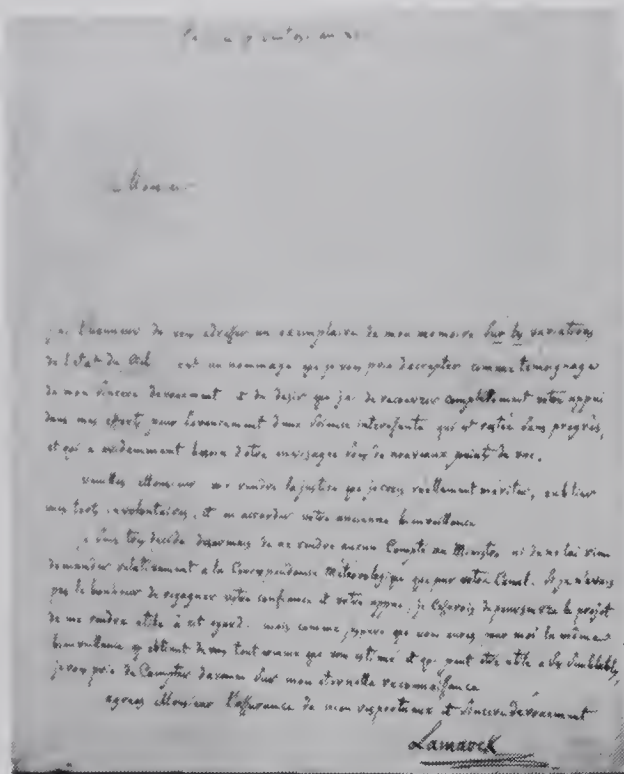 Monsieur
j'ai l'honneur de vous adresser un exemplaire de mon memoire Sur les variations
de l'etat du Ciel est un hommage que je vous prie d'accepter comme témoignage
de mon Sincere devouement et du desir que j'ai de recouvrer complettement votre appui
dans mes efforts pour l'avancement d'une Science interessante qui est restée Sans progrès,
et qui a evidemment besoin d'être envisagée Sous de nouveaux points de vue.
veuillez Monsieur me rendre la justice que je crois reellement meriter, oublier
mes torts involontaires, et m'accorder votre ancienne bienveillance
je Suis très decidé desormais de ne rendre aucun Compte au Ministre ni de ne lui rien
demander relativement a la Correspondance Meteorologique que par votre Canal. Si je n'avois
pas le bonheur de regagner votre confiance et votre appui, je de poursuivre le projet
de me rendre utile à cet egard. mais comme j'espere que vous aurez pour moi la même
bienveillance qu'obtient de vous tout homme que vous estimé et qui peut être utile a Ses Semblables,
je vous prie de Compter d'avance Sur mon eternelle reconnoissance
agreez Monsieur l'assurance de mon respectueux et Sincere devouement
Lamarck